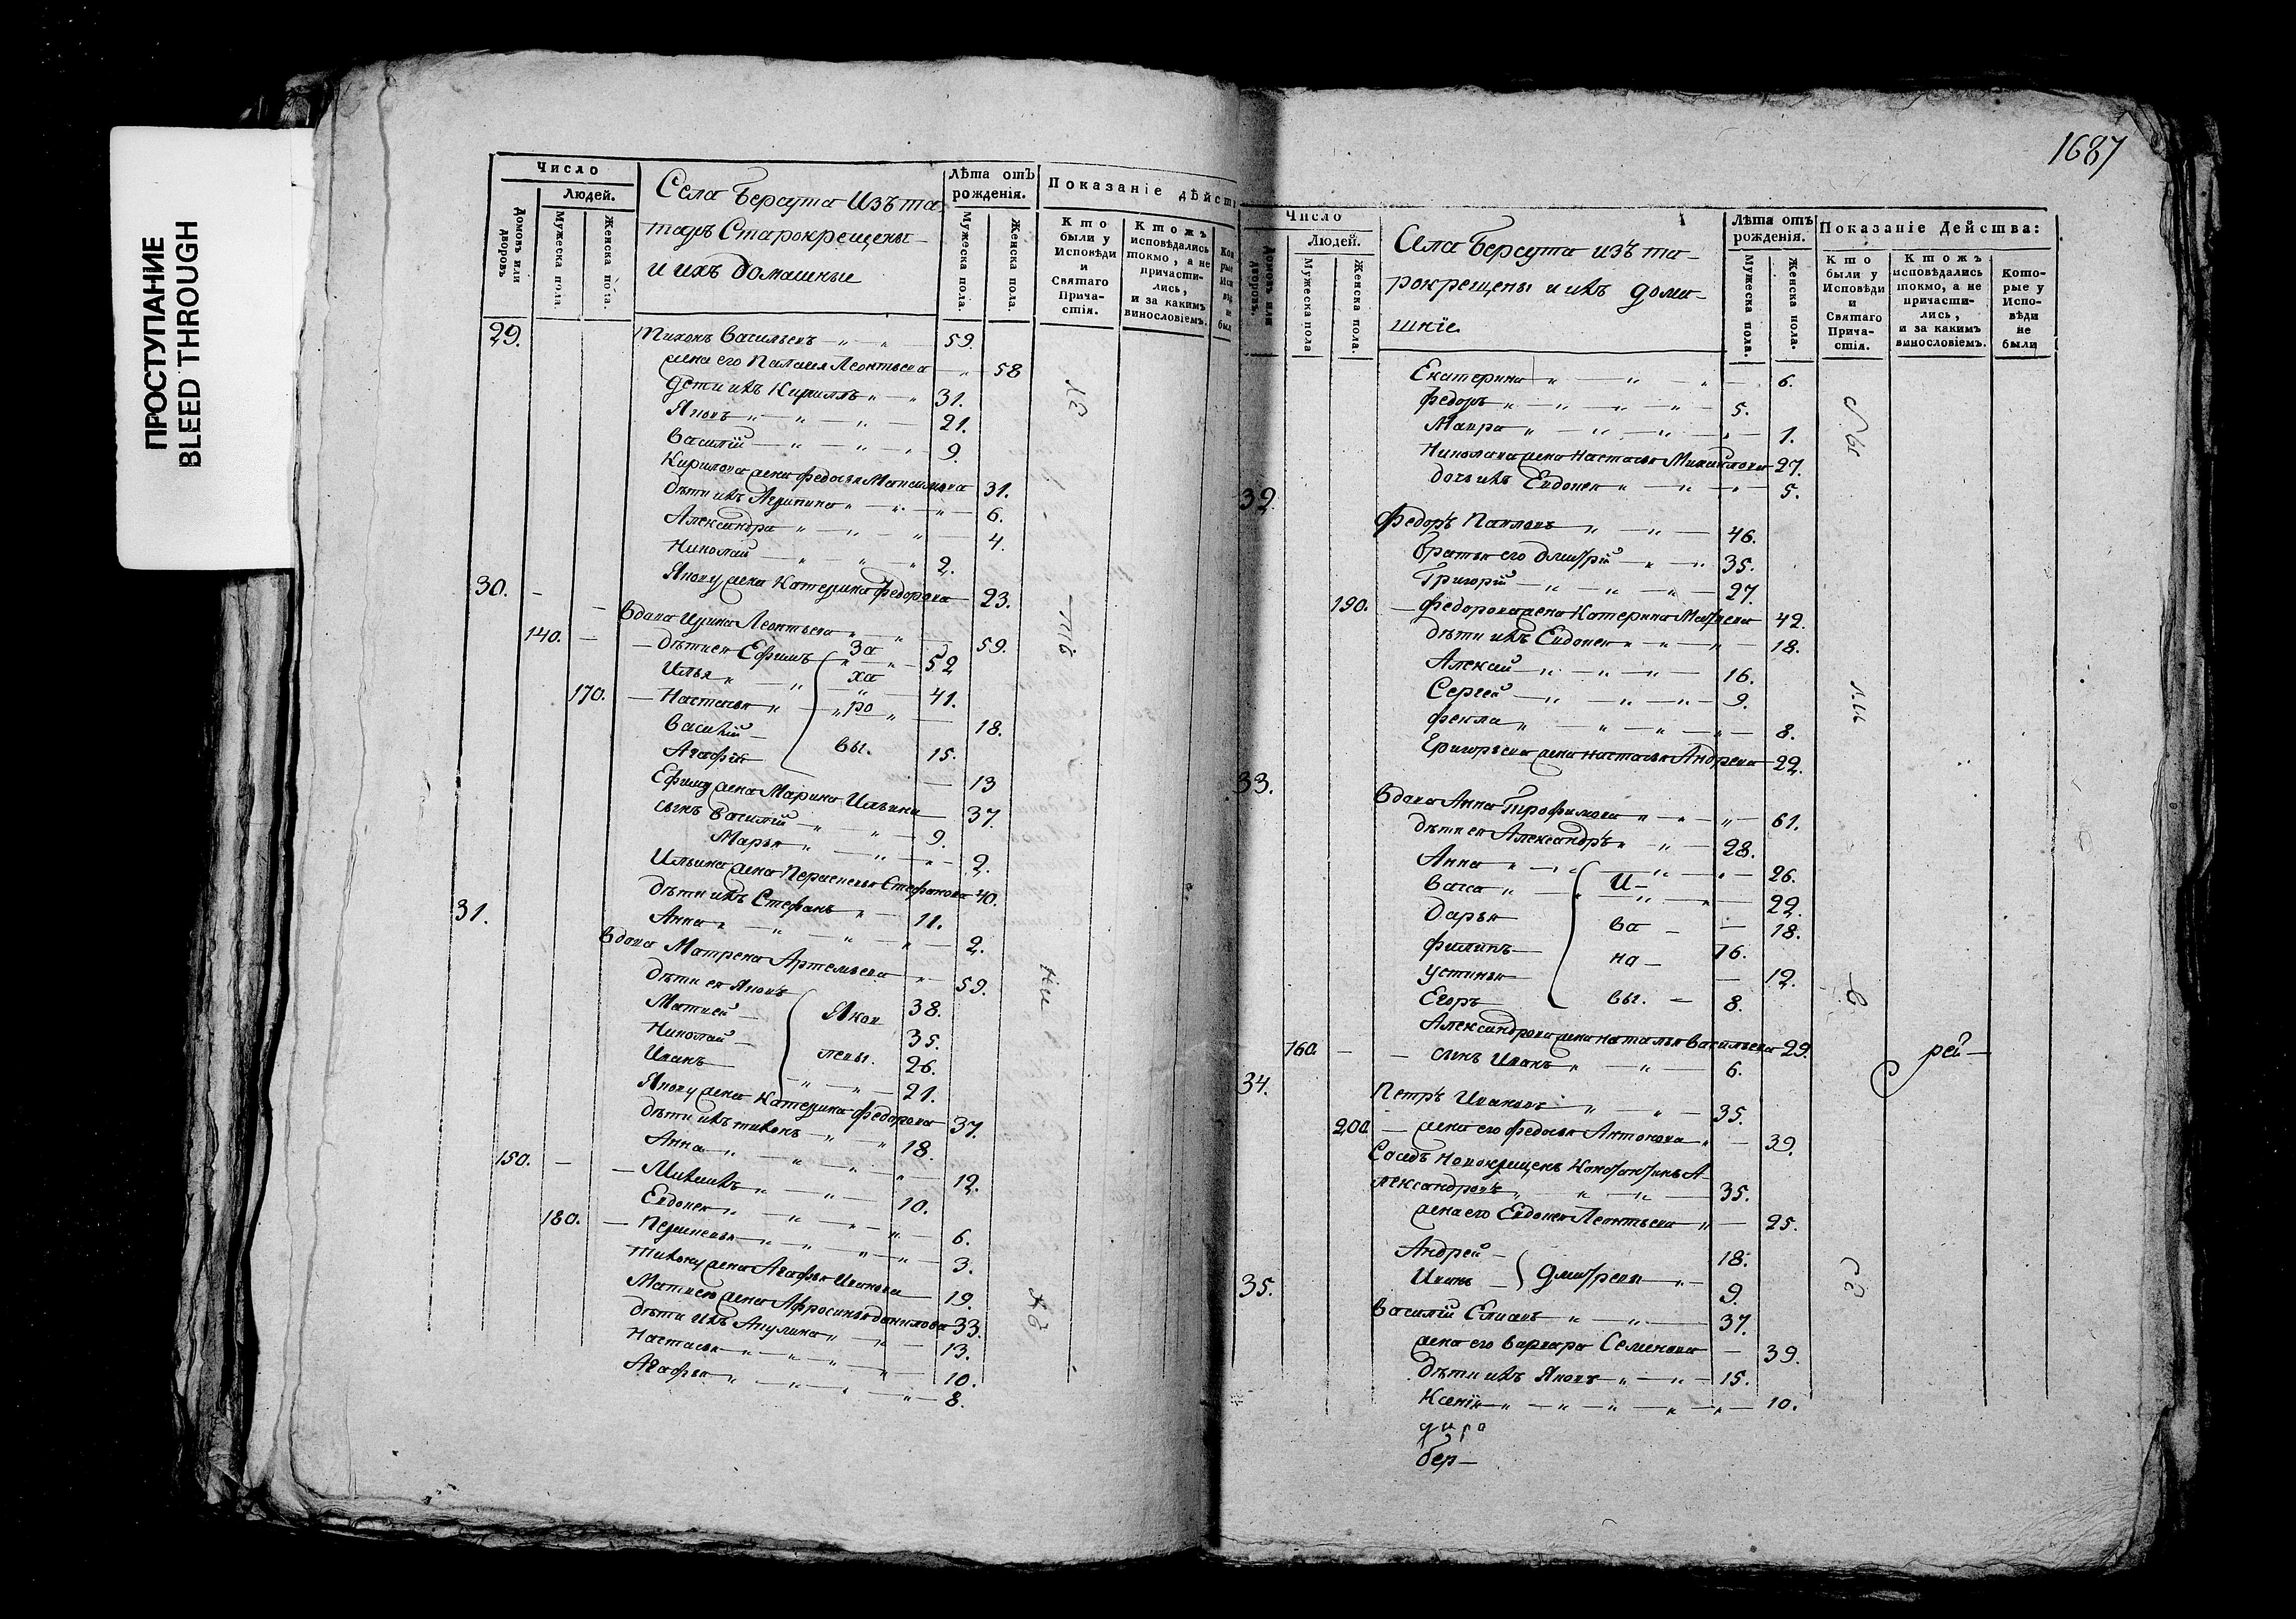 ПРОСТУПАНИЕ
BLEED THROUGH
Число
Людей.
Домовъ или дворовъ
Мужеска пола.
Женска пола.
Села Берсута Изъ та
таръ Старокрещены
и ихъ домашные
Лѣта отъ рожденія.
Мужеска пола.
Женска пола.
Показаніе дѣйст
Кто были у Исповѣди и Святаго Прича-стія.
Ктожъ исповѣдались токмо, а не причасти-лись, и за какимъ винословіемъ.
29. Тихонъ Васильевъ 59.
жена его Палагея Леонтьева 58
дети ихъ Кириллъ 31.
Яковъ 21.
Василій 9.
Кирилова жена Федосья Максимова 31.
дѣти ихъ Агрипина 6.
Александра 4.
Николай 2.
Якову жена Катерина Федорова 23.
30. Вдова Ирина Леонтьева 59.
140. дѣти ея Ефимъ За 52
Илья ха 41.
170. Настасья ро 18.
Василій вы. 15.
Агафія 13
Ефиму жена Марина Ильина 37.
сынъ Василій 9.
Марья 2.
Ильина жена Парасковья Стефанова 40.
дѣти ихъ Стефанъ 11.
Анна 2.
31. Вдова Матрена Артемьева 59.
дѣти ея Яковъ 38.
Матвей Яков 35.
Николай левы. 26.
Иванъ 21.
Якову жена Катерина Федорова 37.
дѣти ихъ тихонъ 18.
Анна 12.
150. Михаилъ 10.
Евдокея 6.
180. Парасковья 3.
тихону жена Агафья Иванова 19.
Матвею жена Афросинья данилова 33.
дѣти ихъ Акулина 13.
Настасья 10.
Агафья 8.
1687
Число
Людей.
Домовъ или дворовъ.
Мужеска пола
Женска пола.
Села Берсута изъ та-
рокрещены и ихъ дома-
шніе
Лѣта отъ рожденія.
Мужеска пола.
Женска пола.
Показаніе Дейсшва:
Кто были у Исповѣди и Святаго Прича-стія.
Ктожъ исповѣдались токмо, а не причасти-лись, и за какимъ винословіемъ.
Кото-рые у Испо-вѣди не были
Екатерина 6.
Федоръ 5.
Мавра 1.
Николаева жена Настасья Михайлова 27.
дочь ихъ Евдокея 5.
32. Федоръ Павловъ 46.
братья его Дмитрій 35.
Григорій 27.
190. Федорова жена Катерина Матвеева 42.
дѣти ихъ Евдокея 18.
Алексей 16.
Сергей 9.
Фекла 8.
Григорьева жена настасья Андреева 22.
33. Вдова Анна Трофимова 61.
дѣти ея Александръ 28.
Анна 26.
Васса И- 22.
Дарья ва 18.
Филипъ на 16.
Устинья 12.
Егоръ вы. 8.
Александрова жена наталья Васильева 29.
160. сынъ Иванъ 6.
34. Петръ Ивановъ 35.
200. жена его Федосья Антонова 39.
Соседъ Новокрещенъ Константинъ А
лександровъ 35.
жена его Евдокея Леонтьева 25.
Андрей 18.
Иванъ Дмитреевы 9.
35. Василій Елисеевъ 37.
жена его Варвара Семенова 39.
дѣти ихъ Яковъ 15.
Ксенія 10.
рей
бер